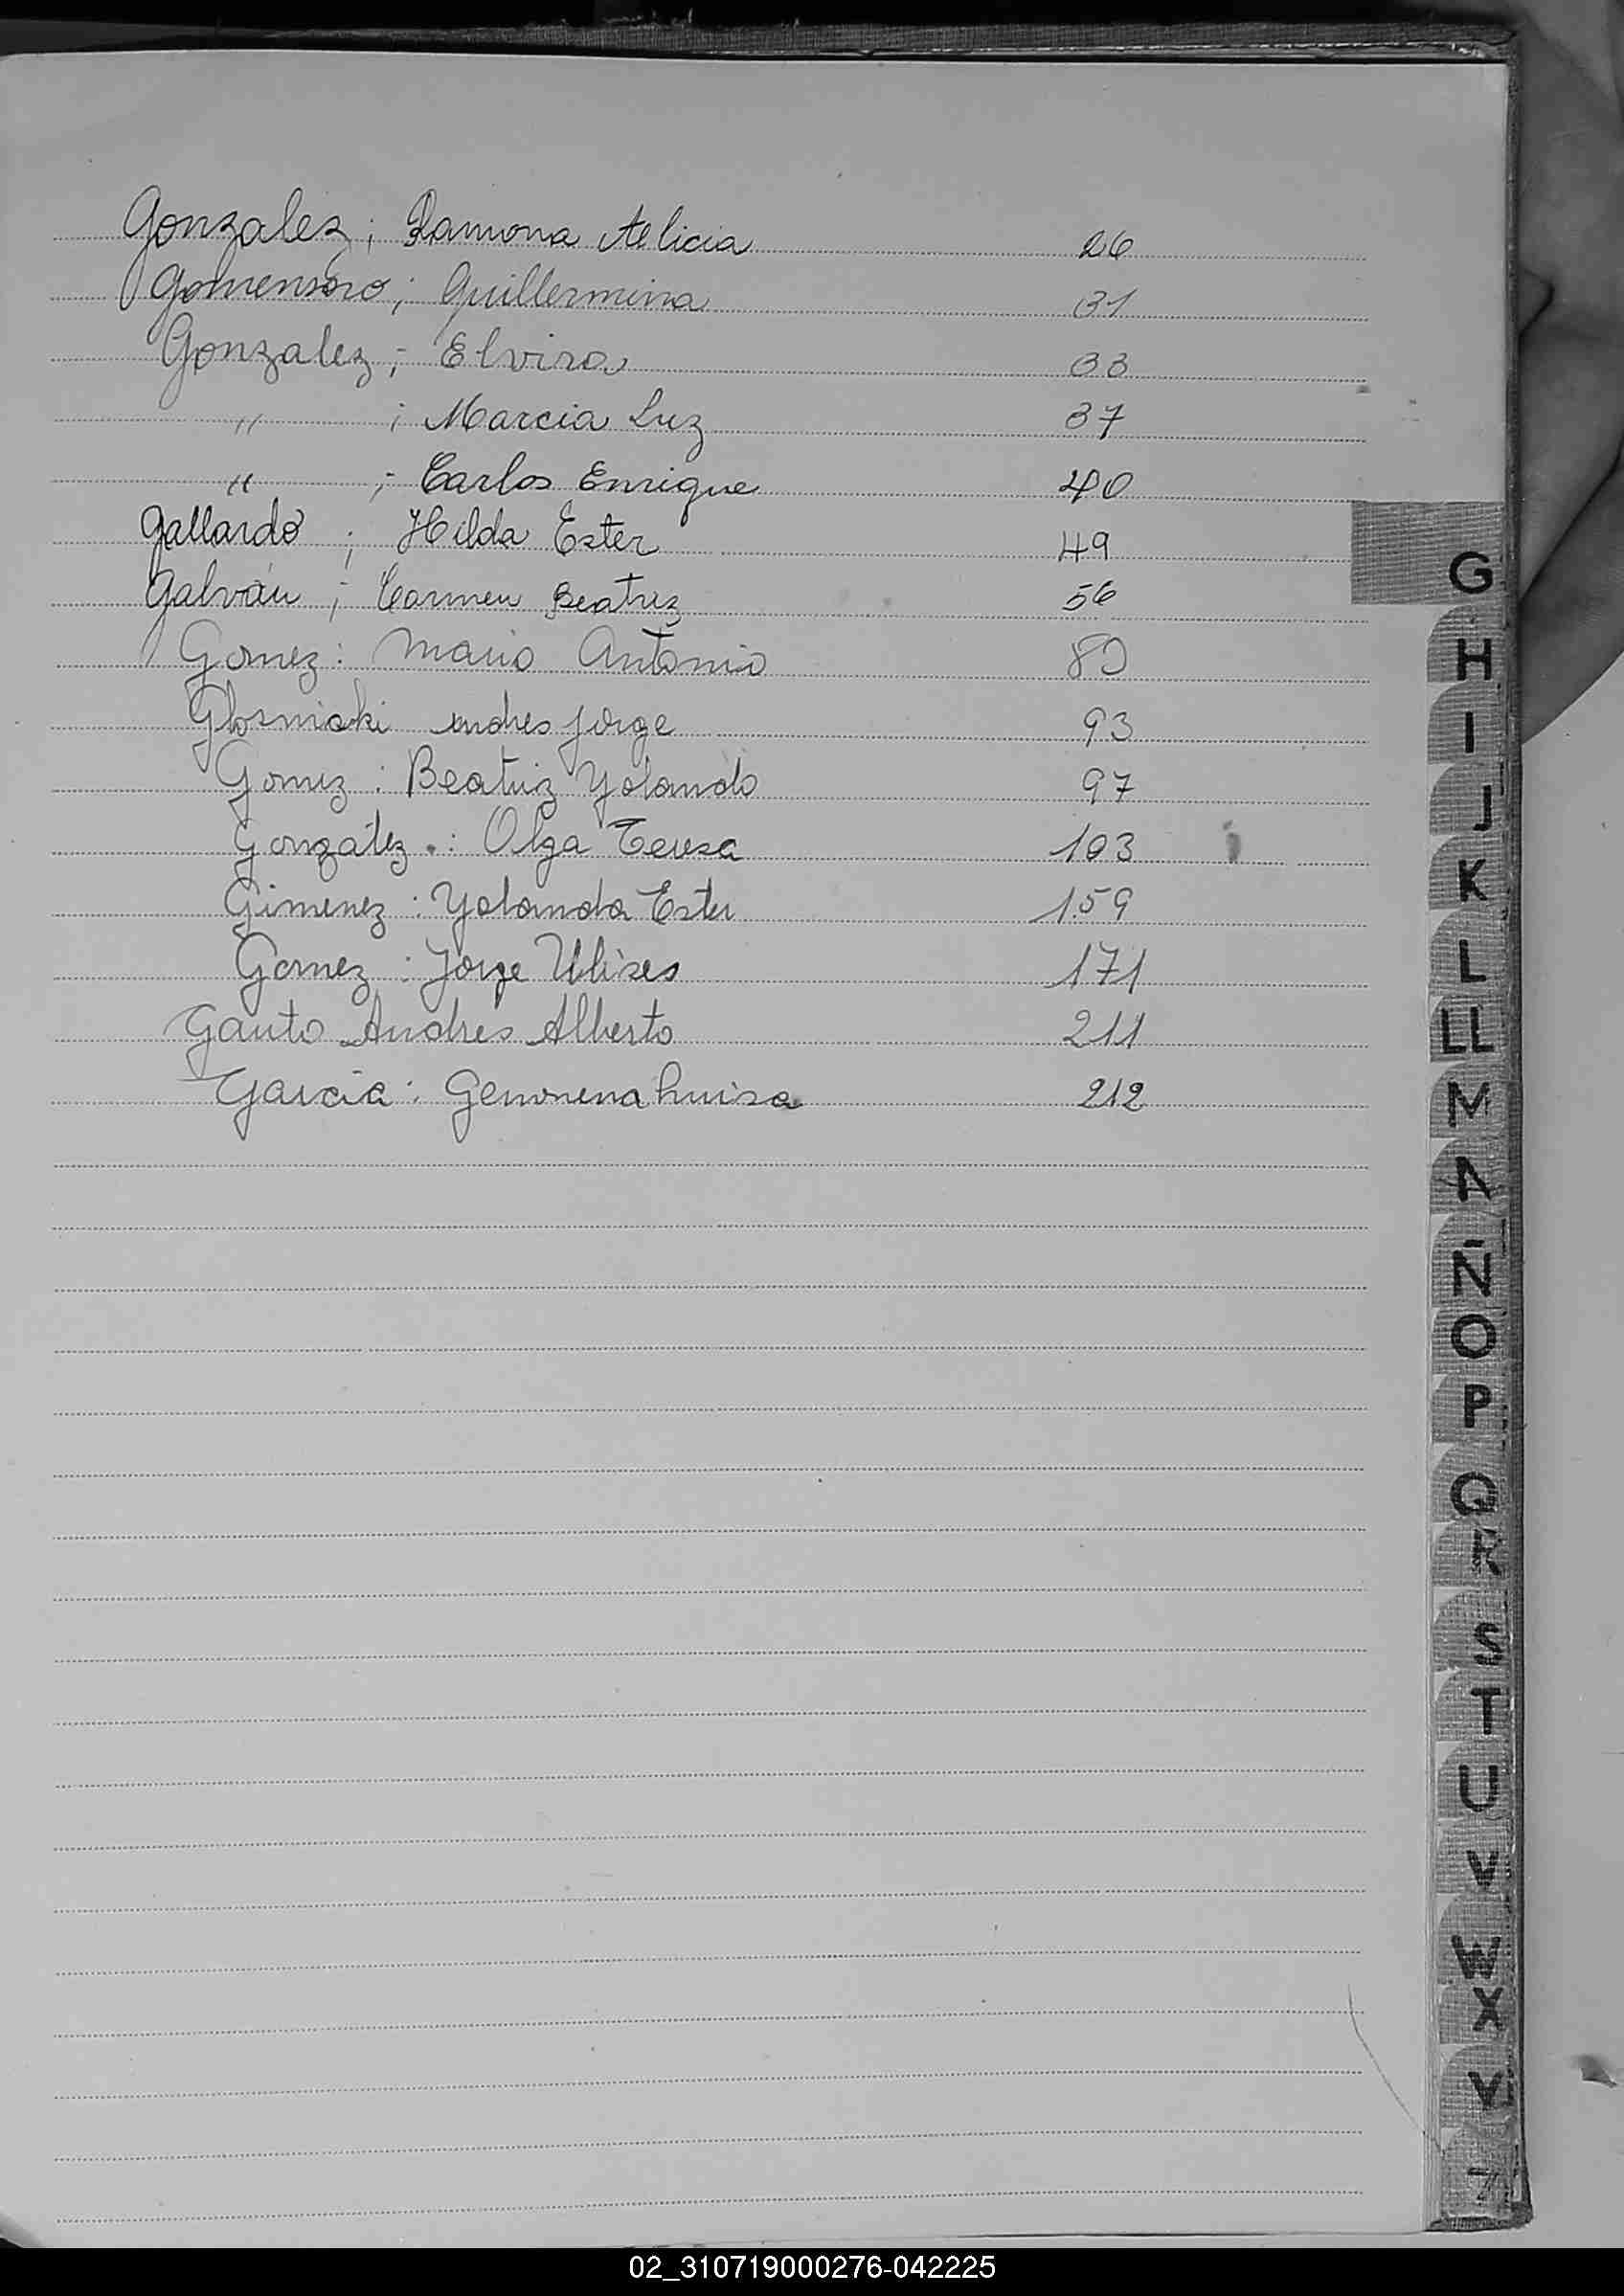 Gonzalez; Ramona Alicia 26
Gomensoro; Guillermina 31
Gonzalez; Elvira 33
" ; Marcia Luz 37
" ; Carlos Enrique 40
Gallardo ; Hilda Ester 49
Galván ; Carmen Beatriz 56
Gomez: Mario Antonio 80
andres jorge 93
Gomez : Beatriz Yolanda 97
González : Olga Teresa 103
Gimenez : Yolanda Ester 159
Gomez : Jorge Ulises 171
Gauto Andres Alberto 211
Garcia : Luisa 212
G
H
I
J
K
L
LL
M
N
Ñ
O
P
Q
R
S
T
U
V
W
X
Y
Z
02_310719000276-042225